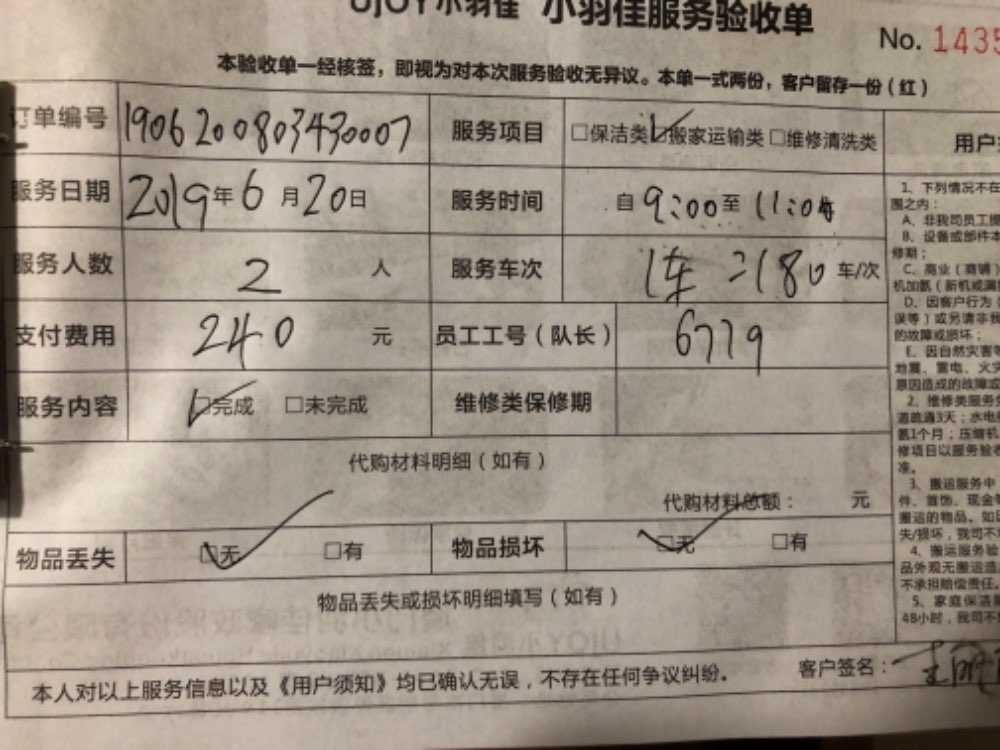 UJOY小羽佳 小羽佳服务验收单
No. 1435
本验收单一经核签，即视为对本次服务验收无异议。本单一式两份，客户留存一份（红）
订单编号 1906200803430007 服务项目 □保洁类 ☑搬家运输类 □维修清洗类
服务日期 2019年6月20日 服务时间 自9:00至11:00
服务人数 2人 服务车次 1车 =180 车/次
支付费用 240元 员工工号（队长） 6779
服务内容 ☑完成 □未完成 维修类保修期
代购材料明细（如有）
代购材料总额： 元
物品丢失 ☑无 □有 物品损坏 ☑无 □有
物品丢失或损坏明细填写（如有）
本人对以上服务信息以及《用户须知》均已确认无误，不存在任何争议纠纷。 客户签名：
用户
1、下列情况不在
围之内：
A、非我司员工
B、设备或部件本
修期；
C、商业（商铺）
机加氨（新机或漏
D、因客户行为
误等）或另请非我
的故障或损坏；
E、因自然灾害等
地震、雷电、火灾
原因造成的故障或
2、维修类服务
道疏通3天；水电
氨1个月；压缩机
修项目以服务验收
准。
3、搬运服务中
件、首饰、现金
搬运的物品。如
失/损坏，我司不
4、搬运服务验
品外观无搬运造
不承担赔偿责任。
5、家庭保洁
48小时，我司不